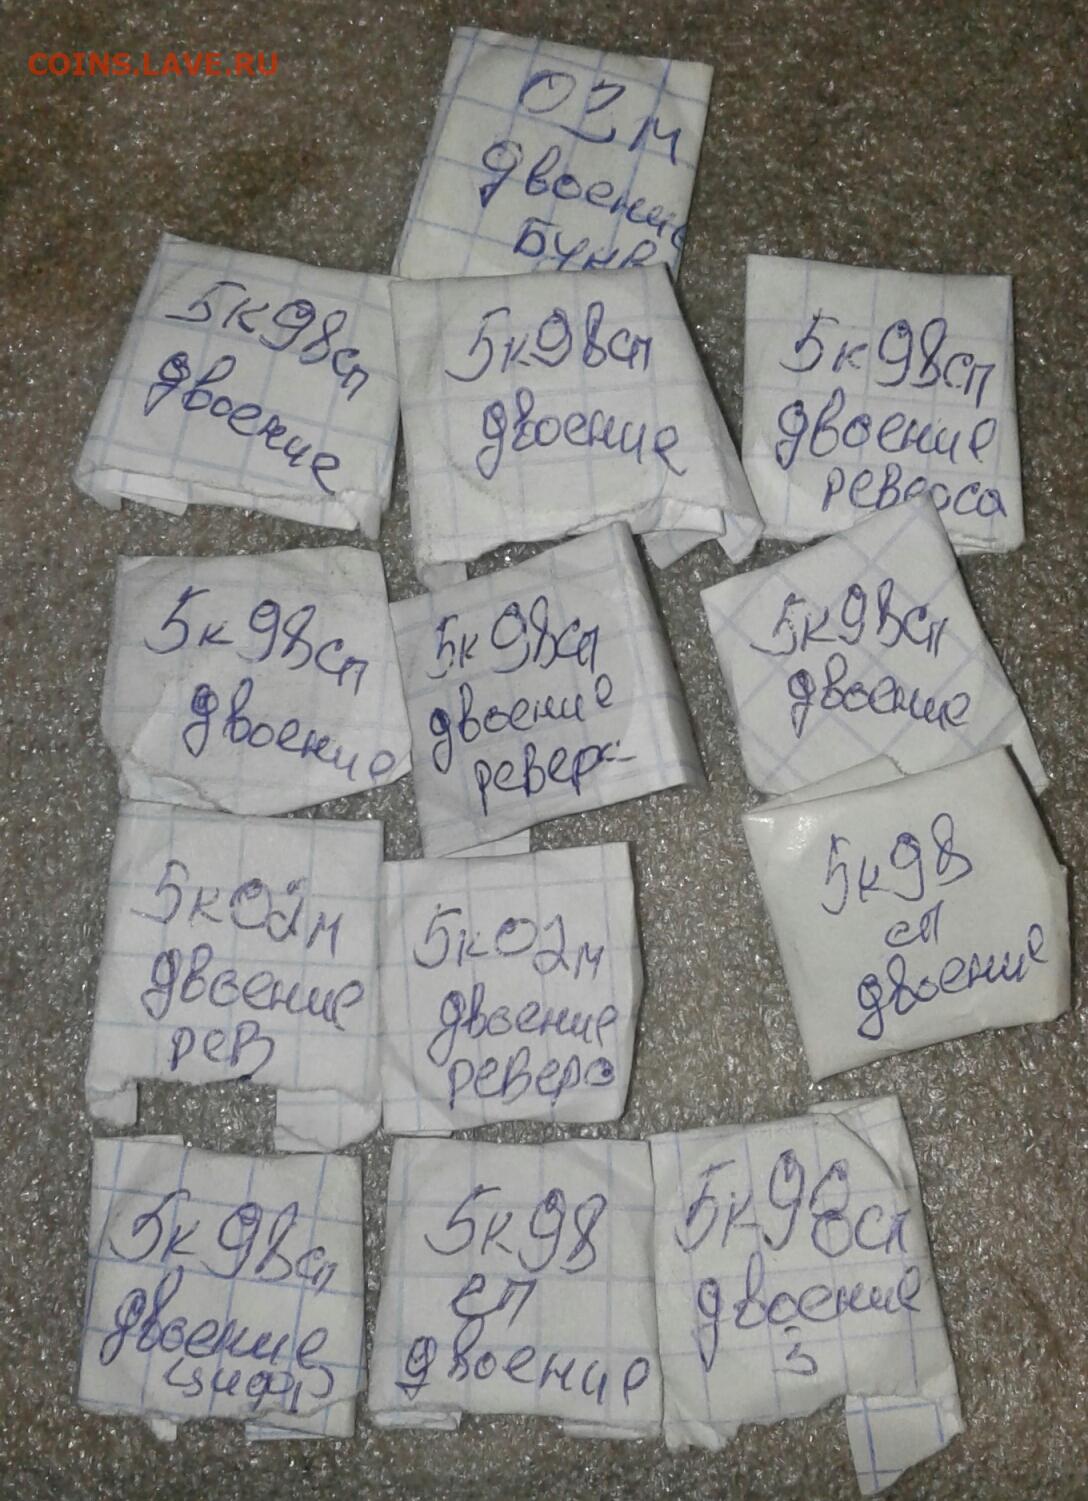 COINS.LAVE.RU
02м
двоение
Букв
5к98сп
двоение
5к98сп
двоение
5к98сп
двоение
реверса
5к98сп
двоение
5к98сп
двоение
5к98сп
двоение
5к98
сп
двоение
5к02м
двоение
рев
5к02м
двоение
реверс
5к98сп
двоение
5к98
сп
двоение
5к98сп
двоение